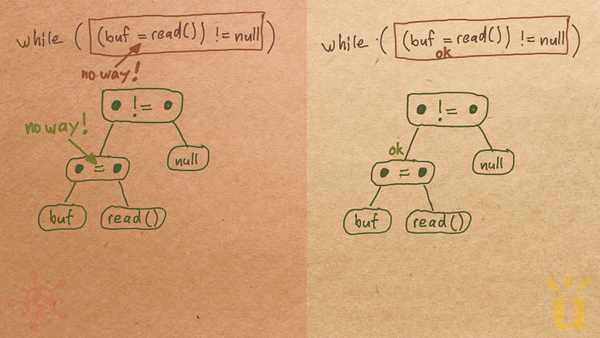 while ( (buf = read()) != null )
no way!
!=
no way!
=
null
buf
read()
while ( (buf = read()) != null )
ok
!=
ok
=
null
buf
read()
u